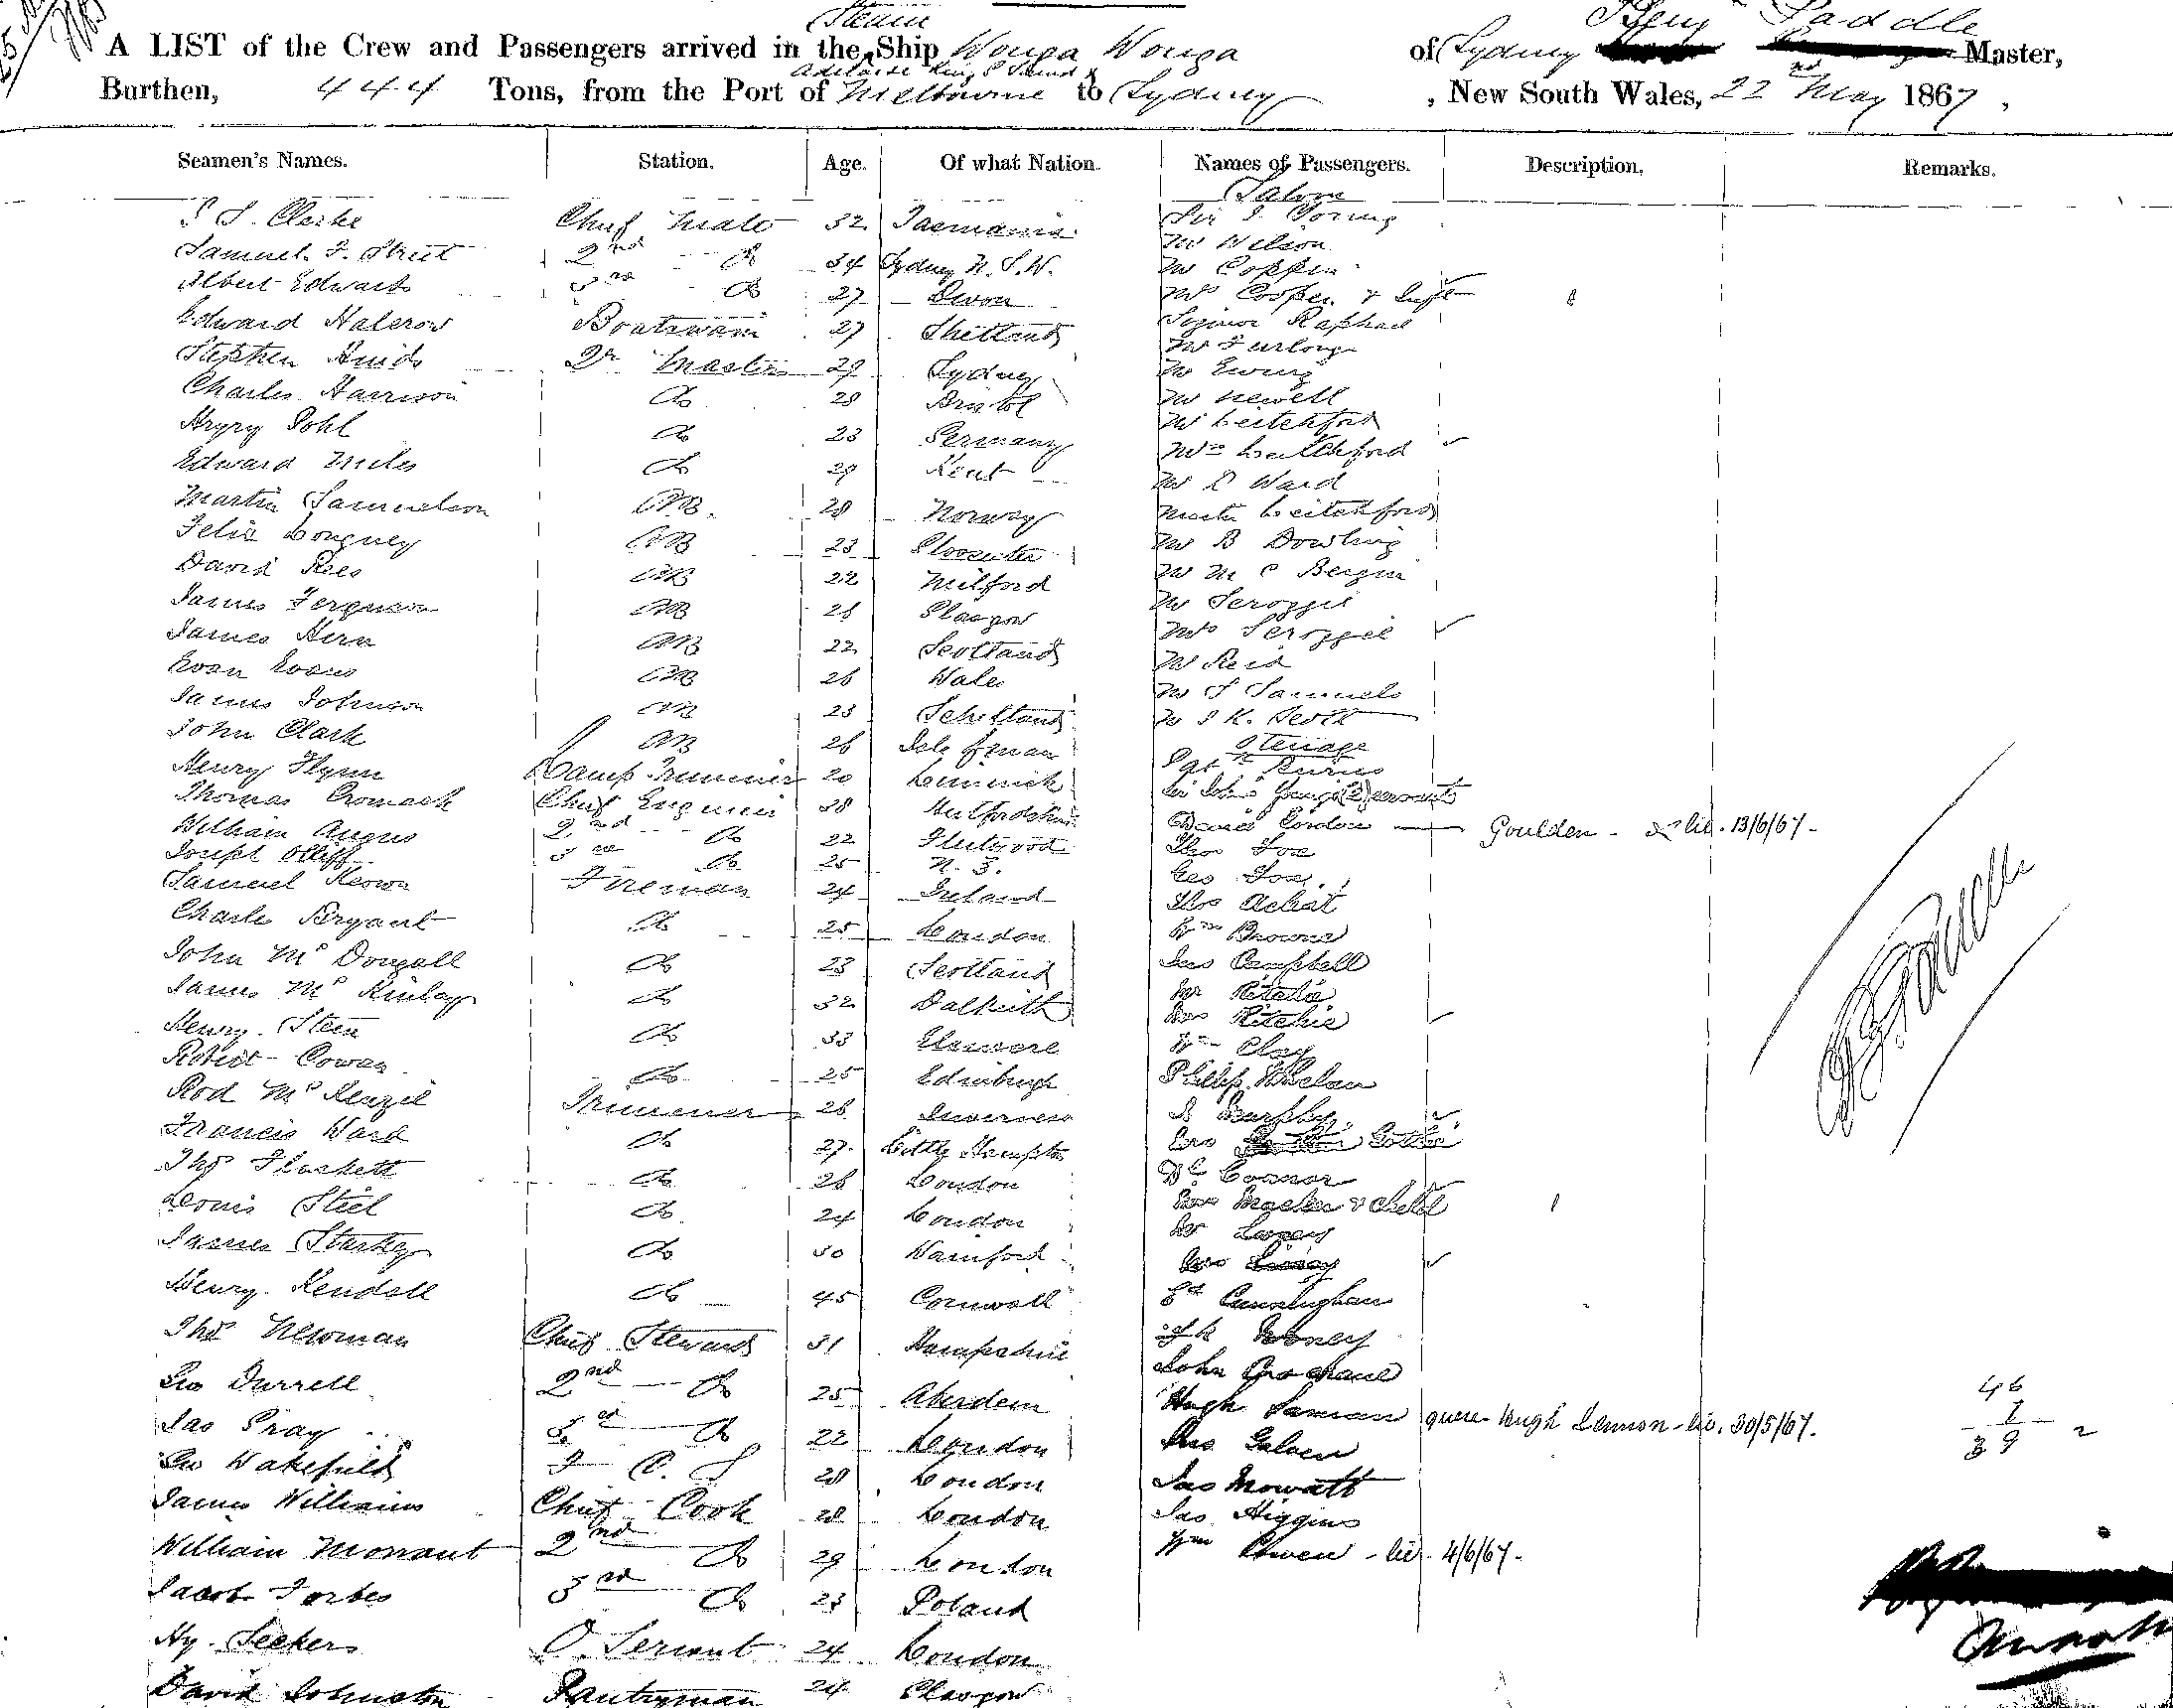 Steam
Benj Paddle
A LIST of the Crew and Passengers arrived in the Ship Wonga Wonga of Sydney Master,
Adelaide King G Sound &
Burthen, 444 Tons, from the Port of Melbourne to Sydney, New South Wales, 22nd May 1867,
Seamen's Names. Station. Age. Of what Nation. Names of Passengers. Description. Remarks.
Saloon
S. Clarke Chief Mate 32 Tasmania Sir J. Young
Samuel Street 2nd Do 34 Sydney N.S.W. Mr Wilson
Mr Coppin
Albert Edwards 3rd Do 27 Devon Mrs Cooper & Inft
Edward Halcrow Boatswain 27 Shetland Signor Raphael
Mr Furlong
Stephen Qr Master 29 Sydney Mr Ewing
Charles Harrison Do 28 Bristol Mr Newell
Pohl Do 23 Germany Mr Leitchford
Mrs Leitchford
Edward Miles Do 29 Kent Mr Ward
Martin Samuelson AB. 28 Norway Master Leitchford
Felix AB 23 Gloucester Mr B Dowling
David Rees AB 22 Milford Mr M C Bergin
James Ferguson AB 26 Glasgow Mr Scroggie
James Hern AB 22 Scotland Mrs Scroggie
Evan Evans AB 26 Wales Mr Reid
James Johnson AB 23 Schetland Mr S Samuels
John Clark AB 26 Isle of Man Mr J K. Scott
Steerage
Henry Flynn Lamp Trimmer 20 Limerick Sgt Burns
Thomas Cromack Chief Engineer 38 Hertfordshire Sir John Youngs (2) servants
William Angus 2nd Do 22 Fleetwood Daniel Gordon — Goulden - lic. 13/6/67-
Joseph Olliff 3rd Do 25 N.S. Thos Fox
Samuel Keown Fireman 24 Ireland Geo Fox
Thos Achat
Charles Bryant Do 25 London Wm Browne
John McDougall Do 23 Scotland Campbell
James McKinlay Do 32 Dalkeith Mr Ritchie
Henry Stein Do 33 Mrs Ritchie
Robert Cowan Do 25 Edinburgh Wm Clay
Phillip Whelan
Rod McKenzie Trimmer 26 Inverness Murphy
Francis Ward Do 27 Little Hampton Mrs
Thos Do 26 London Connor
Louis Steel Do 24 London Mrs & Child
James Starkey Do 30 Wainford Mr
Henry Kendall Do 45 Cornwall Ed Cunningham
Thos Newman Chief Steward 31 Hampshire
Geo Durrell 2nd Do 25 Aberdeen John
46
7
39
Jas Gray 3rd Do 22 London Hugh Lamian quere Hugh Lennon - lic. 30/5/67.
Geo Wakefield F. C. S 28 London
Jas Mowatt
James Williams Chief Cook 28 London Jas Higgins
William Morrant 2nd Do 29 London Wm Owen - lic - 4/6/67-
Jacob Forbes 3rd Do 23 Poland
Hy Seekers O. Servant 24 London
David Johnston Pantryman 24 Glasgow